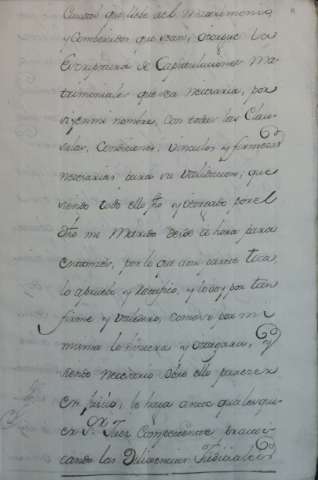 Contrato que llebe ael Matrimonio
y Combenidos que sean, otorgue la
Escriptura de Capitulaciones Ma-
trimoniales que sea necesaria, por
si y en mi nombre, con todas las Clau-
sulas, Condiciones, vinculos y firmezas
necesarias para su validacion, que
siendo todo ello fho y otorgado por el
dho mi Marido desde ahora para
entonces, por lo que a mi parte toca,
lo apruebo y ratifico, y loo, y por tan
firme y valedero, como si por mi
misma lo hiciera y otorgara, y
siendo necesario sobre ello parecer
en juicio, lo haga ante qualesqui-
er Sr. Juez Competente practi-
cando las Diligencias Judiciales